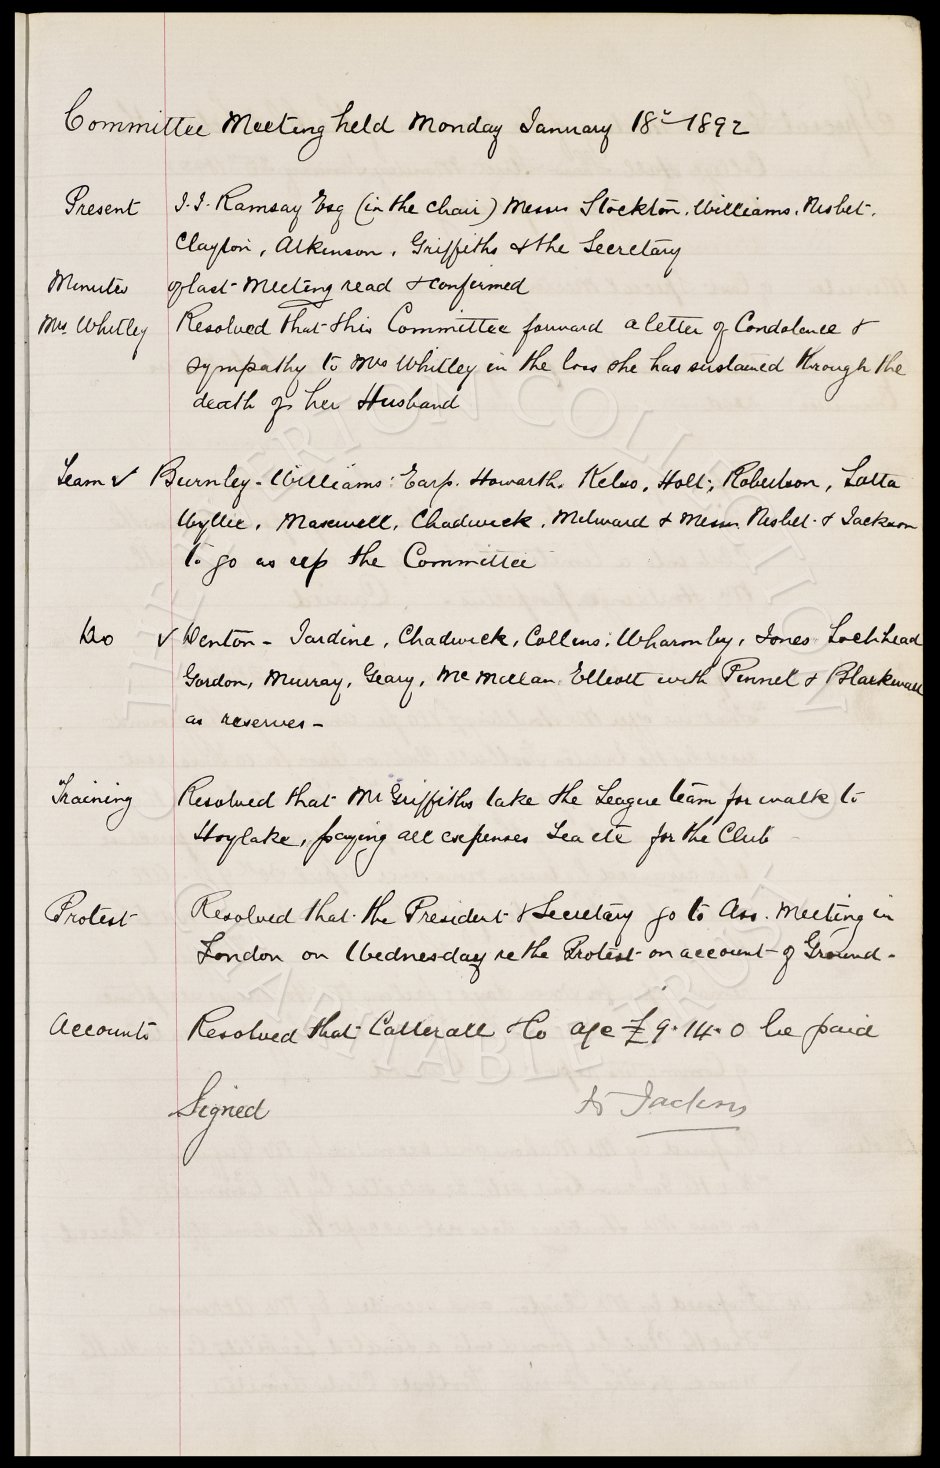 Committee Meeting held Monday January 18th 1892
Present J. J. Ramsay Esq (in the chair) Messrs Stockton, Williams, Nisbet,
Clayton, Atkinson, Griffiths & the Secretary
Minutes of last Meeting read & confirmed
Mrs Whitley Resolved that this Committee forward a letter of Condolence &
sympathy to Mrs Whitley in the loss she has sustained through the
death of her Husband
Team v Burnley - Williams: Earp. Howarth, Kelso, Holt, Robertson, Latta
Wyllie, Maxwell, Chadwick, Milward & Messrs Nisbet & Jackson
to go as rep the Committee
Do v Denton - Jardine, Chadwick, Collins, Wharmby, Jones Lochhead
Gordon, Murray, Geary, McMillan, Elliott with Pinnell & Blackwall
as reserves -
Training Resolved that Mr Griffiths take the League team for walk to
Hoylake, paying all expenses Tea etc for the Club
Protest Resolved that the President & Secretary go to Ass. Meeting in
London on Wednesday re the Protest on account of Ground -
Accounts Resolved that Catterall & Co a/c £9.14.0 be paid
Signed Jackson
EVERTON COLLECTION
CHARITABLE TRUST